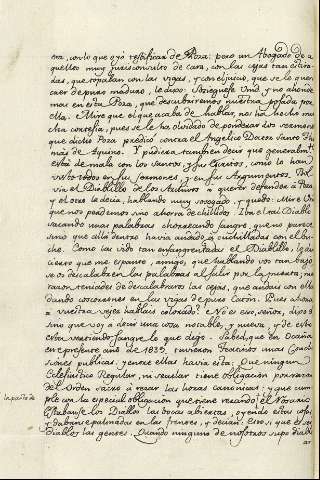 era, con lo que oyó testificar de Poza: pero un Abogado de a
quellos muy jurisconsulto de cara, con las cejas tan estira
das, que topaban con las vigas, y con el juicio, que se le que
caer de puro maduro, le dijo: Sosieguese Vmd, y no ahonde
mas en esta Poza, que descubriremos nuestra
ella. Mire que el que acaba de hablar, no ha hecho mu
cha confesa, pues se le ha olvidado de ponderar dos sermones
que dicho Poza predicó contra el Angelico Doctor Santo Tho
mas de Aquino. Y pudiera tambien decir que generalmte
están de mala con los Santos y sus Escritos, como lo han
visto todos en sus sermones, y en sus Argumentos. Vol
vía el Diablillo de los Autores a querer defender a Poza
y el otro le decía, hablando muy sosegado, y quedo: Mire Vm
que nos perdemos sino ahorra de chillidos. Con el tal Diablo
sacando unas palabras chorreando sangre, que no parece
sino que al pedantazo havia andado a cuchilladas con el bu
che. Como las vido tan ensangrentadas el Diablillo, le di
cierto que me espanto, amigo, que hablando vos tan bajo
se os descalabren las palabras al salir por la puerta; me
razon teniades de descalabraros las cejas, que andais con ellas
dando coscorrones en las vigas de puro Catón. Pues ahora
a vuestra vejez hablais colorado? No es eso, señor, dijo
sino que voy a decir una cosa notable, y nueva, y de es
está vertiendo sangre lo que digo. Sabed, que en Ocaña
este presente año de 1633, tuvieron Teatinos unas Conclu
siones publicas, y entre ellas havia esta. Que ningun
Eclesiastico Regular, ni secular tiene obligacion por razon
del Orden sacro à rezar las horas canonicas: y que cum
ple con la especial obligacion que tiene rezando el Rosario
Estabanse los Diablos las bocas abiertas, oyendo estas cosas
y dabanse palmadas en las frentes, y decian: Esso si que es ser
Diablos las gentes. Quando ninguno de nosotros supo diabl